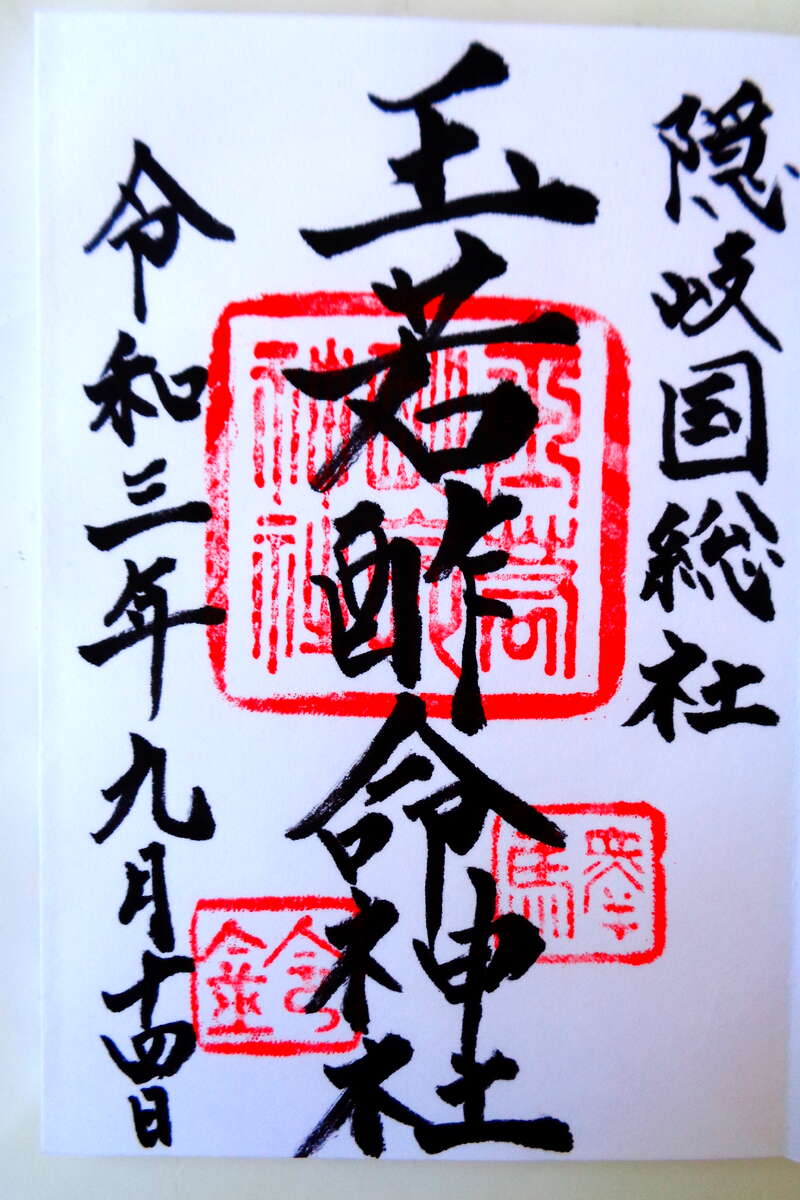 隠岐国総社
玉若酢命神社
令和三年九月十四日
驛
鈴